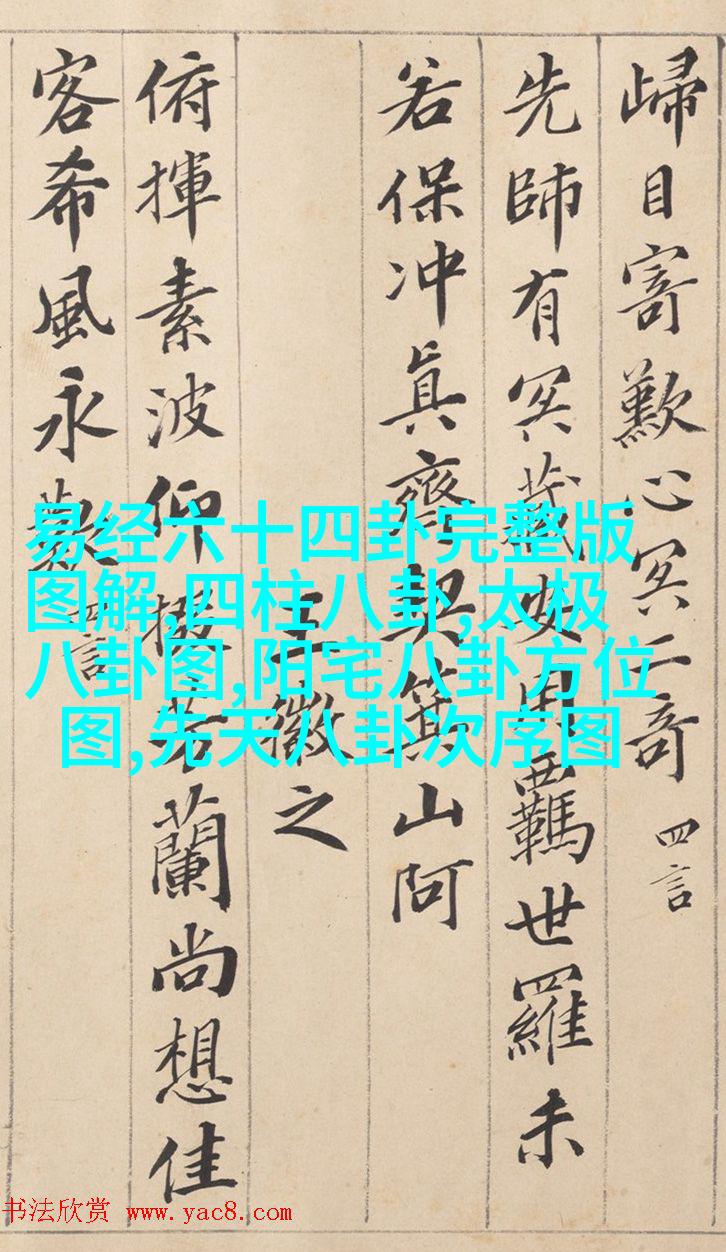 歸目寄歎心冥二奇 四言
先師有冥藏安用覊世羅未
若保冲眞齊契箕山阿
王徽之
俯揮素波仰掇芳蘭尚想佳
客希風永歎 四言
易经六十四卦完整版
图解,四柱八卦,太极
八卦图,阳宅八卦方位
图,先天八卦次序图
书法欣赏 www.yac8.com